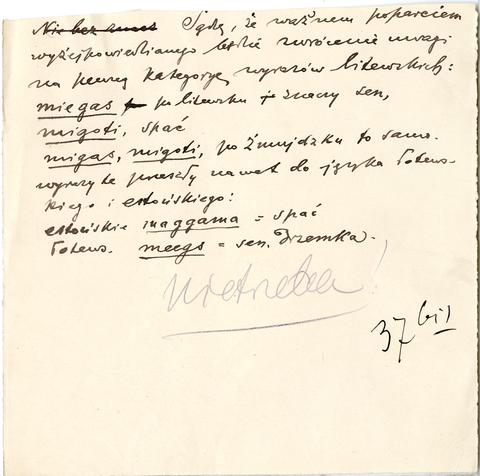 Nie bez Sądzę, że ważnem poparciem
wyżejpowiedzianego będzie zwrócenie uwagi
na pewną kategorję wyrazów litewskich:
miegas po litewsku znaczy sen,
migoti, spać
migas, migoti, po żmujdzku to samo.
wyrazy te przeszły nawet do języka łotews-
kiego i estońskiego:
estońskie maggama = spać
łotews. meegs = sen, drzemka.
nietrzeba!
37 bis